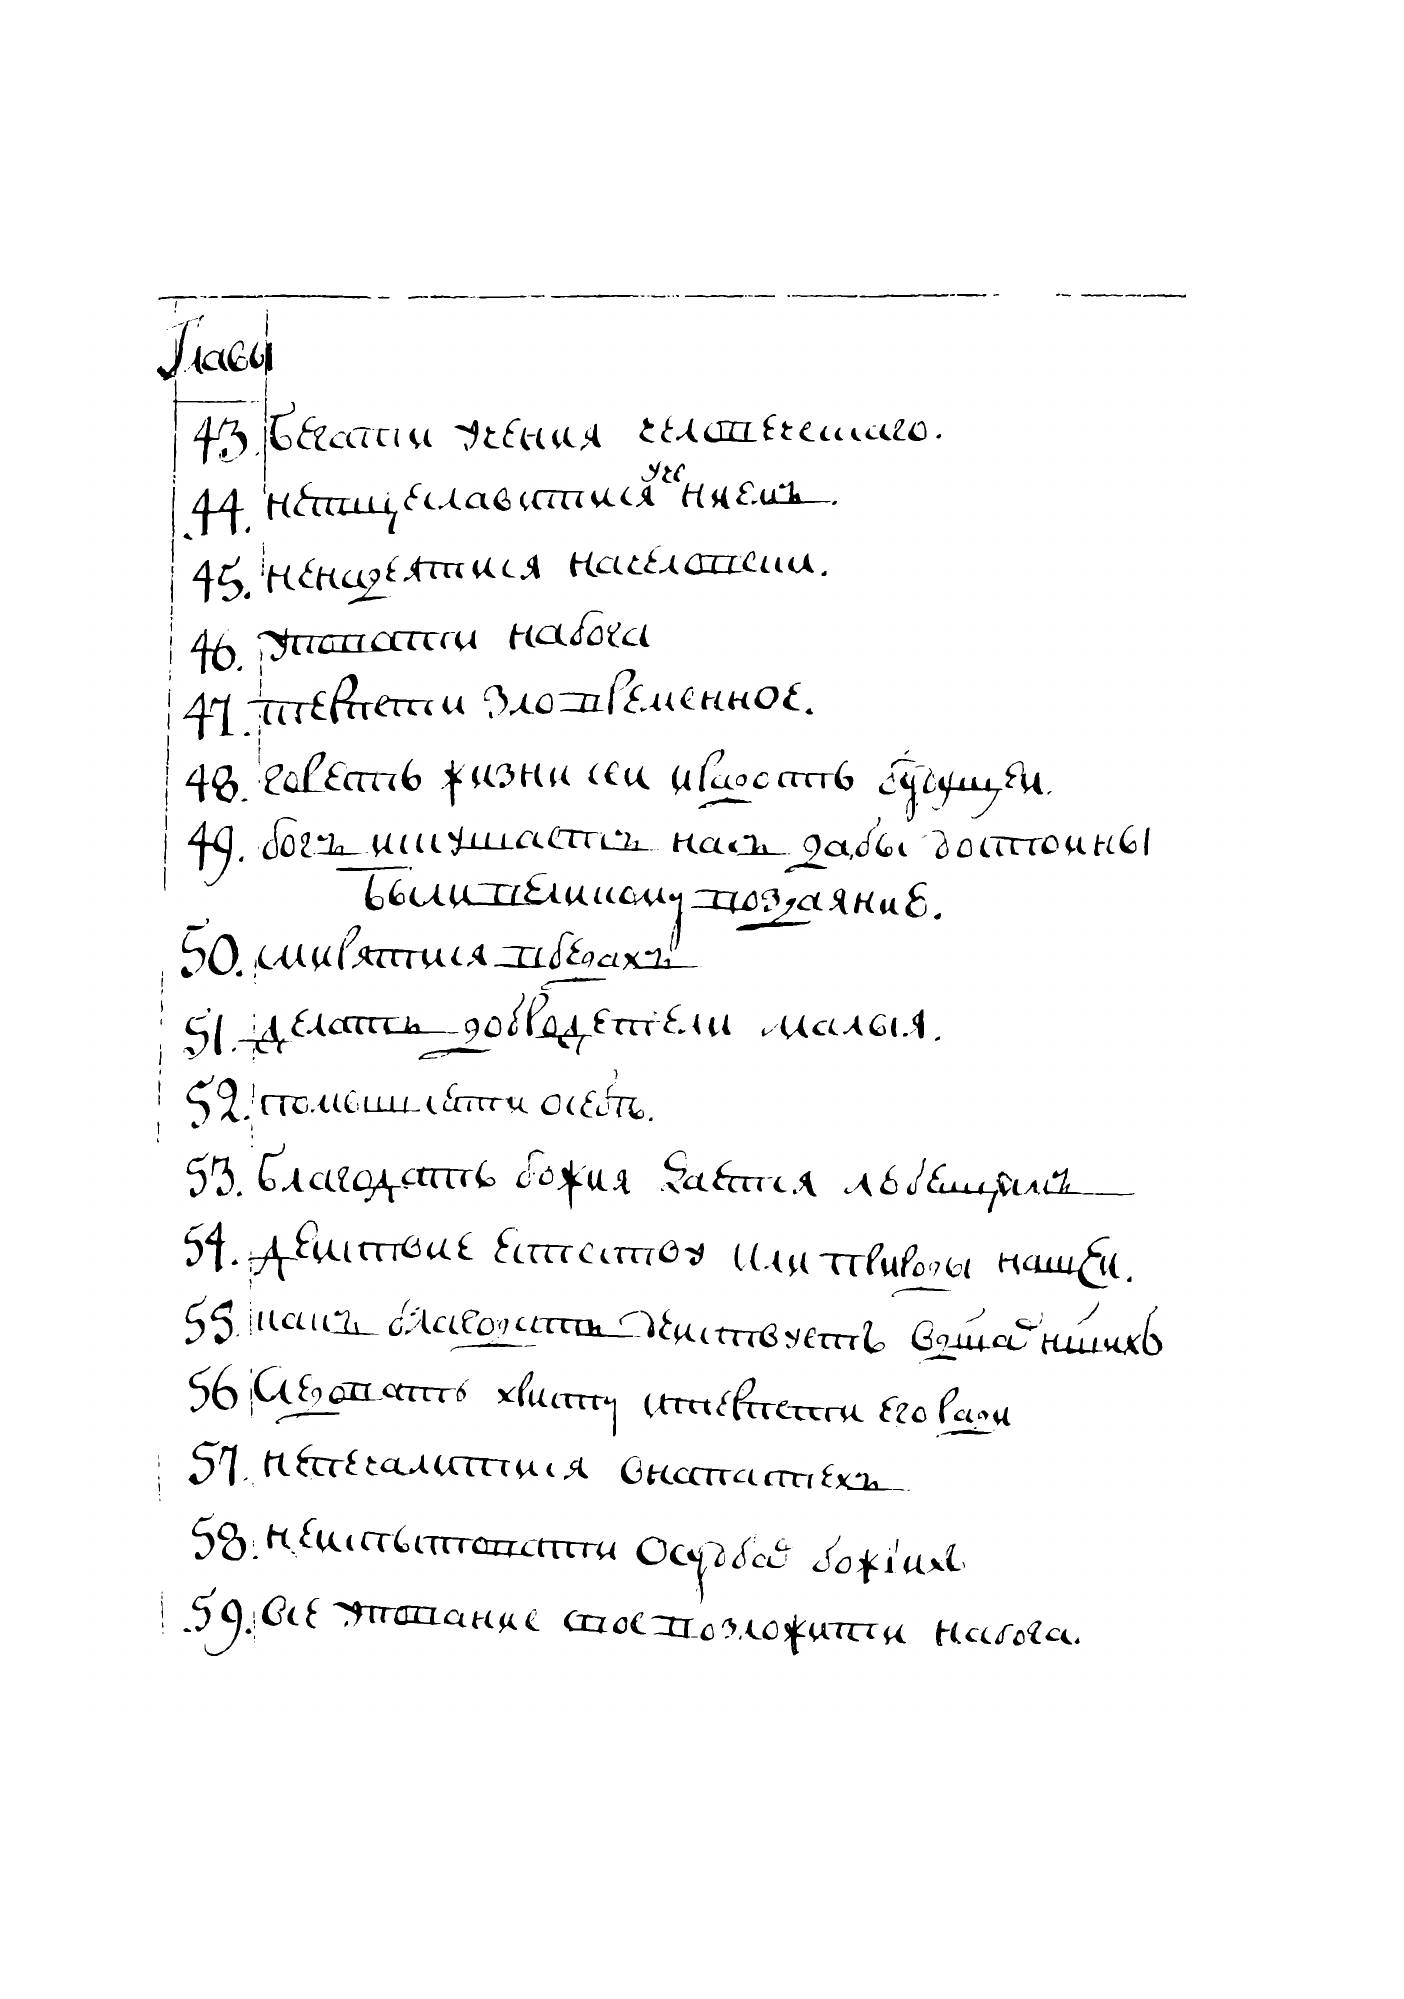 Главы
43. Бегати учения человеческаго.
44. нетщеславитися учениемъ.
45. ненадеятися начеловеки.
46. уповати набога
47. терпети зло временное.
48. горесть жизни сеи ирадость будущеи.
49. богъ искушаетъ насъ дабы достоины
были великому воздаяние.
50. смирятися вбедахъ
51. делать добродетели малыя.
52. помышляти осебѣ.
53. Благодать божия дается любящимъ
54. деиствие естество или природы нашеи.
55. какъ благодати деиствуетъ
56 Следовать христу итерпети его ради
57. непечалитися внапастехъ
58. неиспытовати Осудбаѣ божіихъ
59. все упование свое возложити набога.